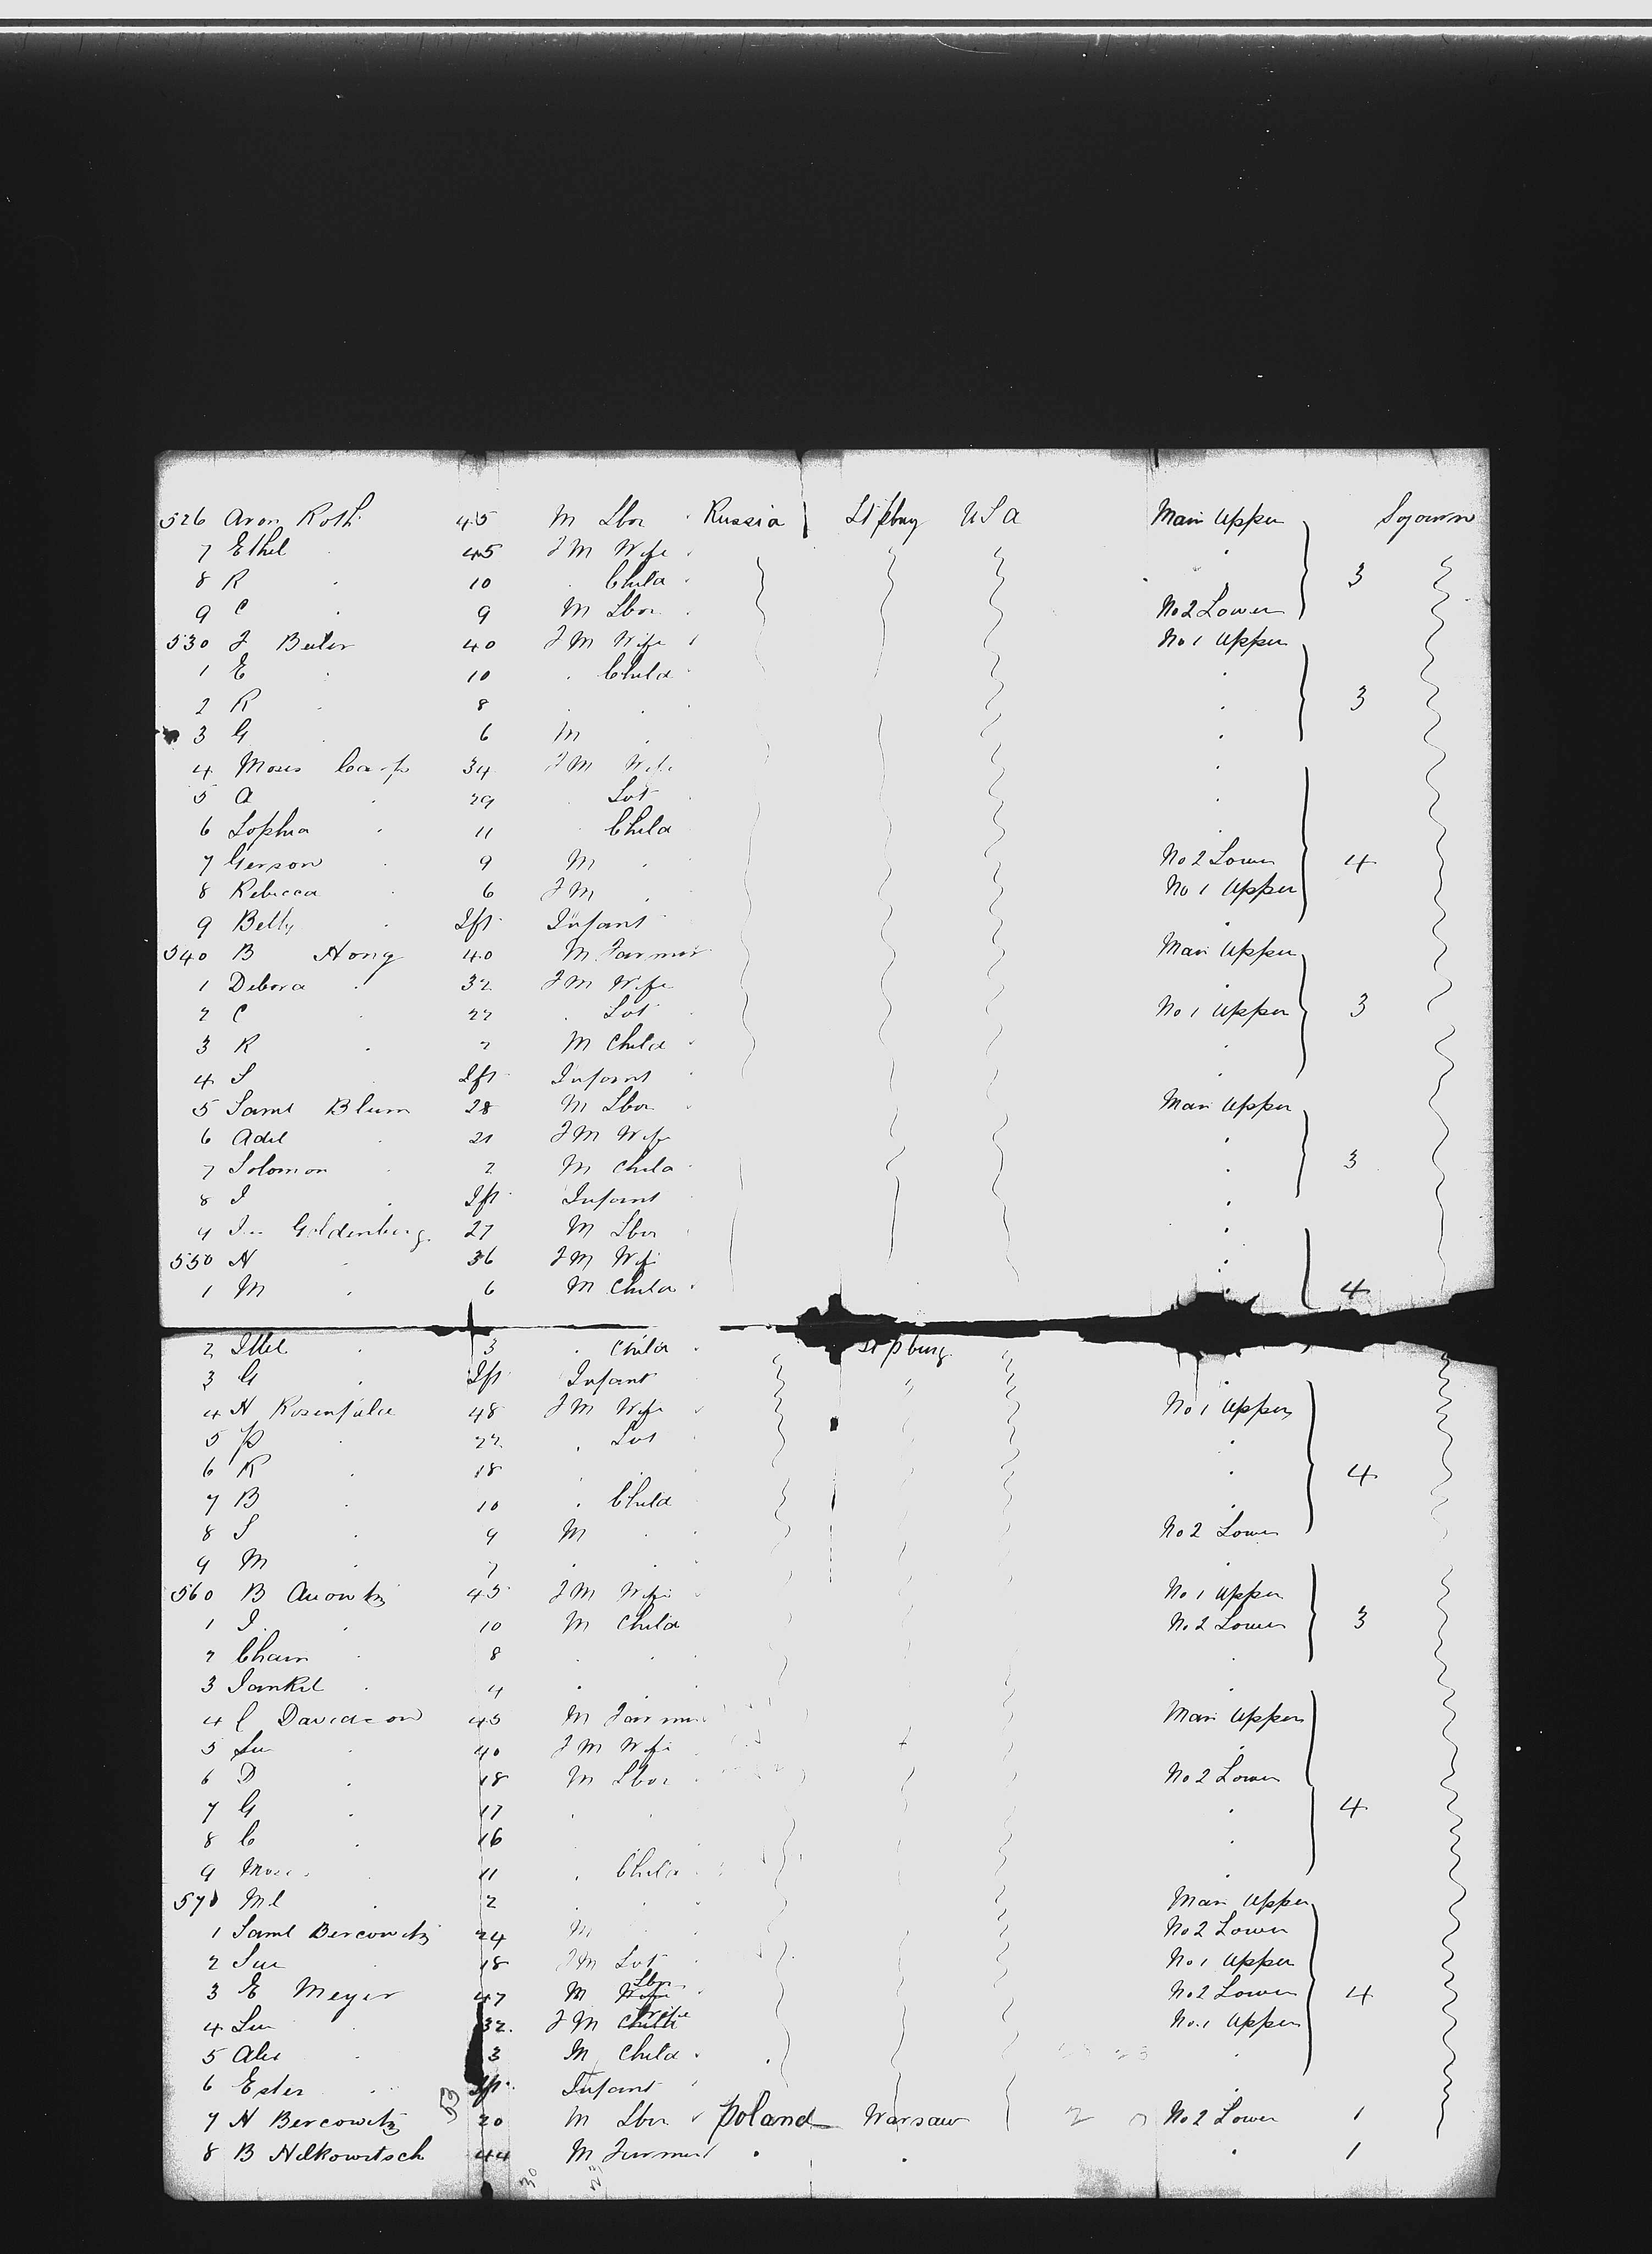 526 Aron Roth 45 M Lbor Russia St pburg USA Main Upper Sojourn
7 Ethel 45 F M Wife
8 R 10 Child 3
9 C 9 M Lbor No 2 Lower
530 J 40 F M Wife No 1 Upper
1 E 10 Child
2 R 8 3
3 G 6 M
4 Moses 34 F M Wife
5 A 29
6 Sophia 11 Child
7 Gerson 9 M No 2 Lower 4
8 Rebecca 6 F M No 1 Upper
9 Betty Ift Infant
540 B Hong 40 M Farmer Main Upper
1 Debora 32 F M Wife
2 C 22 No 1 Upper 3
3 R 2 M Child
4 S Ift Infant
5 Saml Blum 28 M Lbor Main Upper
6 Adel 21 F M Wife
7 Solomon 2 M Child 3
8 I Ift Infant
9 Goldenberg 27 M Lbor
550 N 36 F M Wife
1 M 6 M Child 4
2 Ittel 3 Child St pburg
3 G Ift Infant
4 N 48 F M Wife No 1 Upper
5 P 22
6 R 18 4
7 B 10 Child
8 S 9 M No 2 Lower
9 M 7
560 B 45 F M Wife No 1 Upper
1 I 10 M Child No 2 Lower 3
2 Chaim 8
3 Jankel 4
4 C Davidson 45 M Farmer Main Upper
5 40 F M Wife
6 D 18 M Lbor No 2 Lower
7 G 17 4
8 C 16
9 11 Child
570 Ml 2 Main Upper
1 Saml Bercowitz 24 M No 2 Lower
2 18 F M No 1 Upper
3 E Meyer 47 M Lbor No 2 Lower 4
4 32 F M Wife No 1 Upper
5 3 M Child
6 Ester Ift Infant
7 N Bercowitz 20 M Lbor Poland Warsaw No 2 Lower 1
8 B 44 M Farmer 1